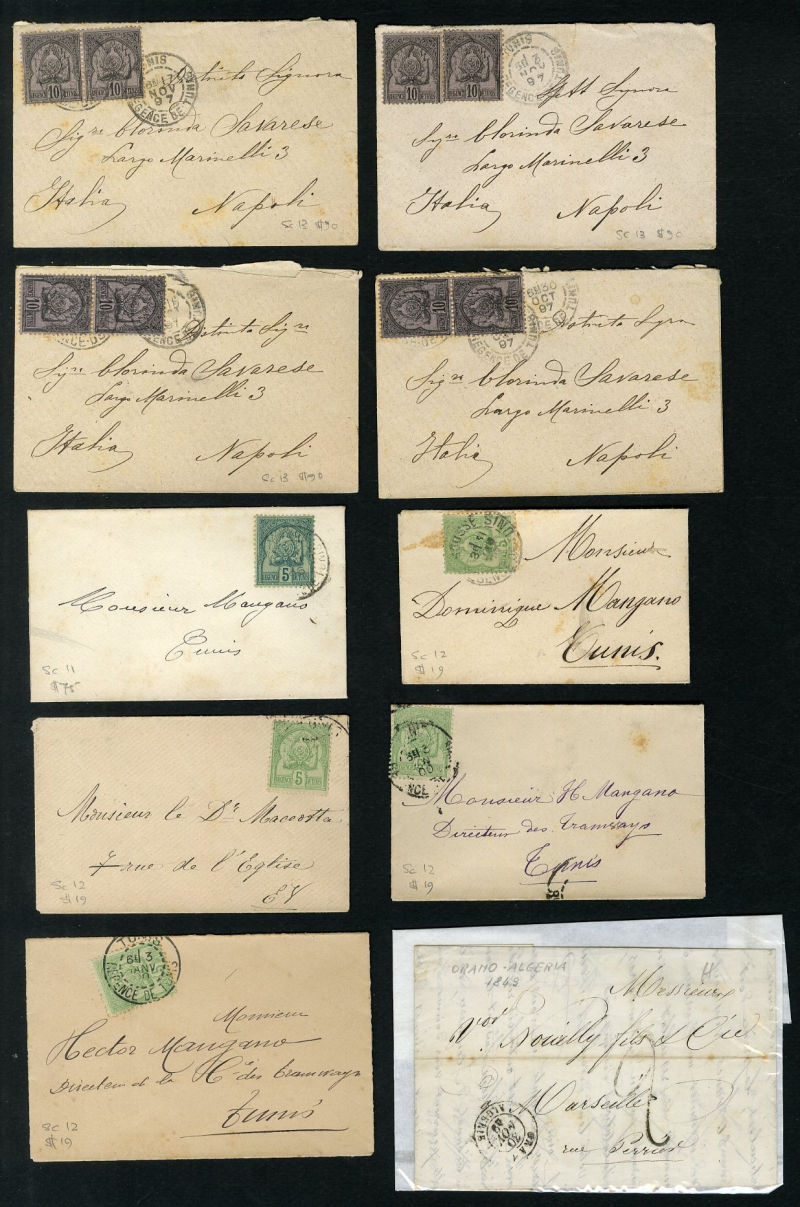 10 10
TUNIS
17
NOV
97
REGENCE DE TUNIS
Distinta Signora
Sigra Clorinda Savarese
Largo Marinelli 3
Italia Napoli
Sc 13 $90
10 10
TUNIS
2
NOV
97
REGENCE DE TUNIS
Sigra Clorinda Savarese
Largo Marinelli 3
Italia Napoli
Sc 13 $90
10 10
97
REGENCE DE
Distinta Sigra
Sigra Clorinda Savarese
Largo Marinelli 3
Italia Napoli
Sc 13 $90
10 10
30
OCT
97
REGENCE DE TUNIS
Distinta Sigra
Sigra Clorinda Savarese
Largo Marinelli 3
Italia Napoli
5
REGENCE TUNIS
Monsieur Mangano
Tunis
Sc 11
$75
Monsieur
Dominique Mangano
Tunis.
Sc 12
$19
5
REGENCE TUNIS
Monsieur le Dr Macootta
7 rue de l'Eglise
EV
Sc 12
$19
Monsieur H Mangano
Directeur des Tramways
Tunis
Sc 12
$19
TUNIS
3
JANV
REGENCE DE TUNIS
Monsieur
Hector Mangano
Directeur de la Cie des Tramways
Tunis
Sc 12
$19
ORANO-ALGERIA
1849
H
Messieurs
Noilly fils & Cie
2
Marseille
rue Perrier
ORAN
30
NOV
49
ALGERIE